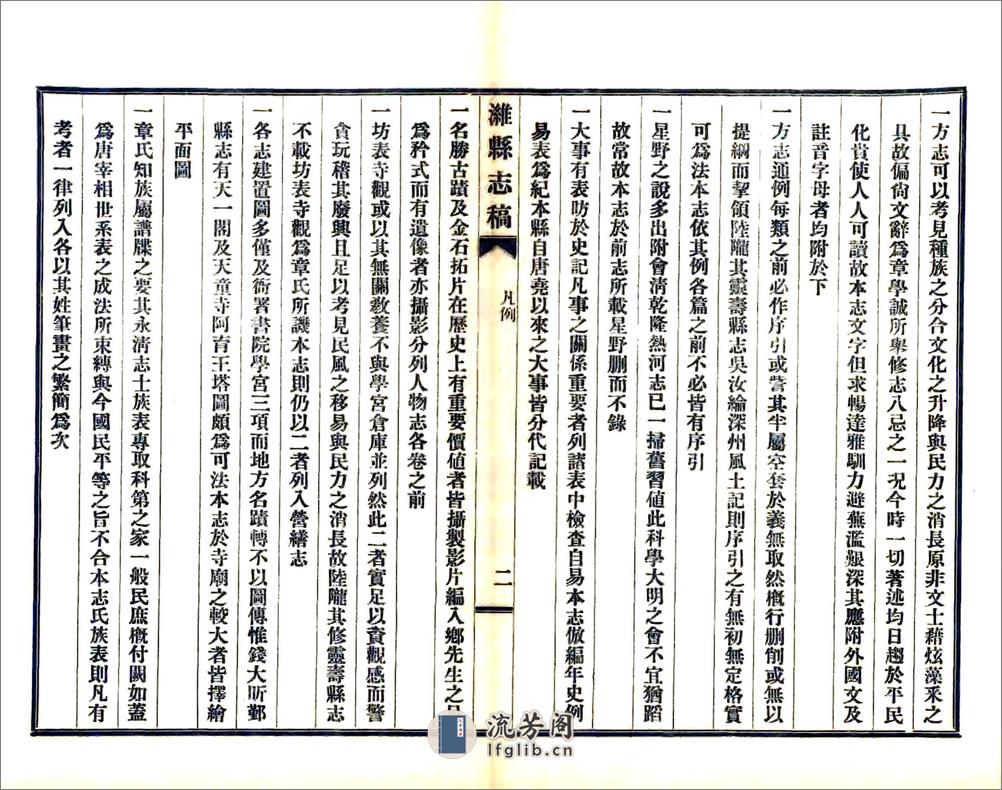 一方志可以考見種族之分合文化之升降與民力之消長原非文士藉炫藻采之
具故偏尙文辭爲章學誠所舉修志八忌之一况今時一切著述均日趨於平民
化貴使人人可讀故本志文字但求暢達雅馴力避蕪濫艱深其應附外國文及
註音字母者均附於下
一方志通例每類之前必作序引或訾其半屬空套於義無取然槪行删削或無以
提綱而挈領陸隴其靈壽縣志吳汝綸深州風土記則序引之有無初無定格實
可爲法本志依其例各篇之前不必皆有序引
一星野之說多出附會淸乾隆熱河志已一掃舊習値此科學大明之會不宜猶蹈
故常故本志於前志所載星野删而不錄
一大事有表昉於史記凡事之關係重要者列諸表中檢查自易本志倣編年史例
易表爲紀本縣自唐堯以來之大事皆分代記載
濰縣志稿
凡例
二
一名勝古蹟及金石拓片在歷史上有重要價値者皆攝製影片編入鄕先生之
爲矜式而有遺像者亦攝影分列人物志各卷之前
一坊表寺觀或以其無關敎養不與學宮倉庫並列然此二者實足以資觀感而警
貪玩稽其廢興且足以考見民風之移易與民力之消長故陸隴其修靈壽縣志
不載坊表寺觀爲章氏所譏本志則仍以二者列入營繕志
一各志建置圖多僅及衙署書院學宮三項而地方名蹟轉不以圖傳惟錢大昕鄞
縣志有天一閣及天童寺阿育王塔圖頗爲可法本志於寺廟之較大者皆擇繪
平面圖
一章氏知族屬譜牒之要其永淸志士族表專取科第之家一般民庶槪付闕如蓋
爲唐宰相世系表之成法所束縛與今國民平等之旨不合本志氏族表則凡有
考者一律列入各以其姓筆畫之繁簡爲次
流芳阁
lfglib.cn